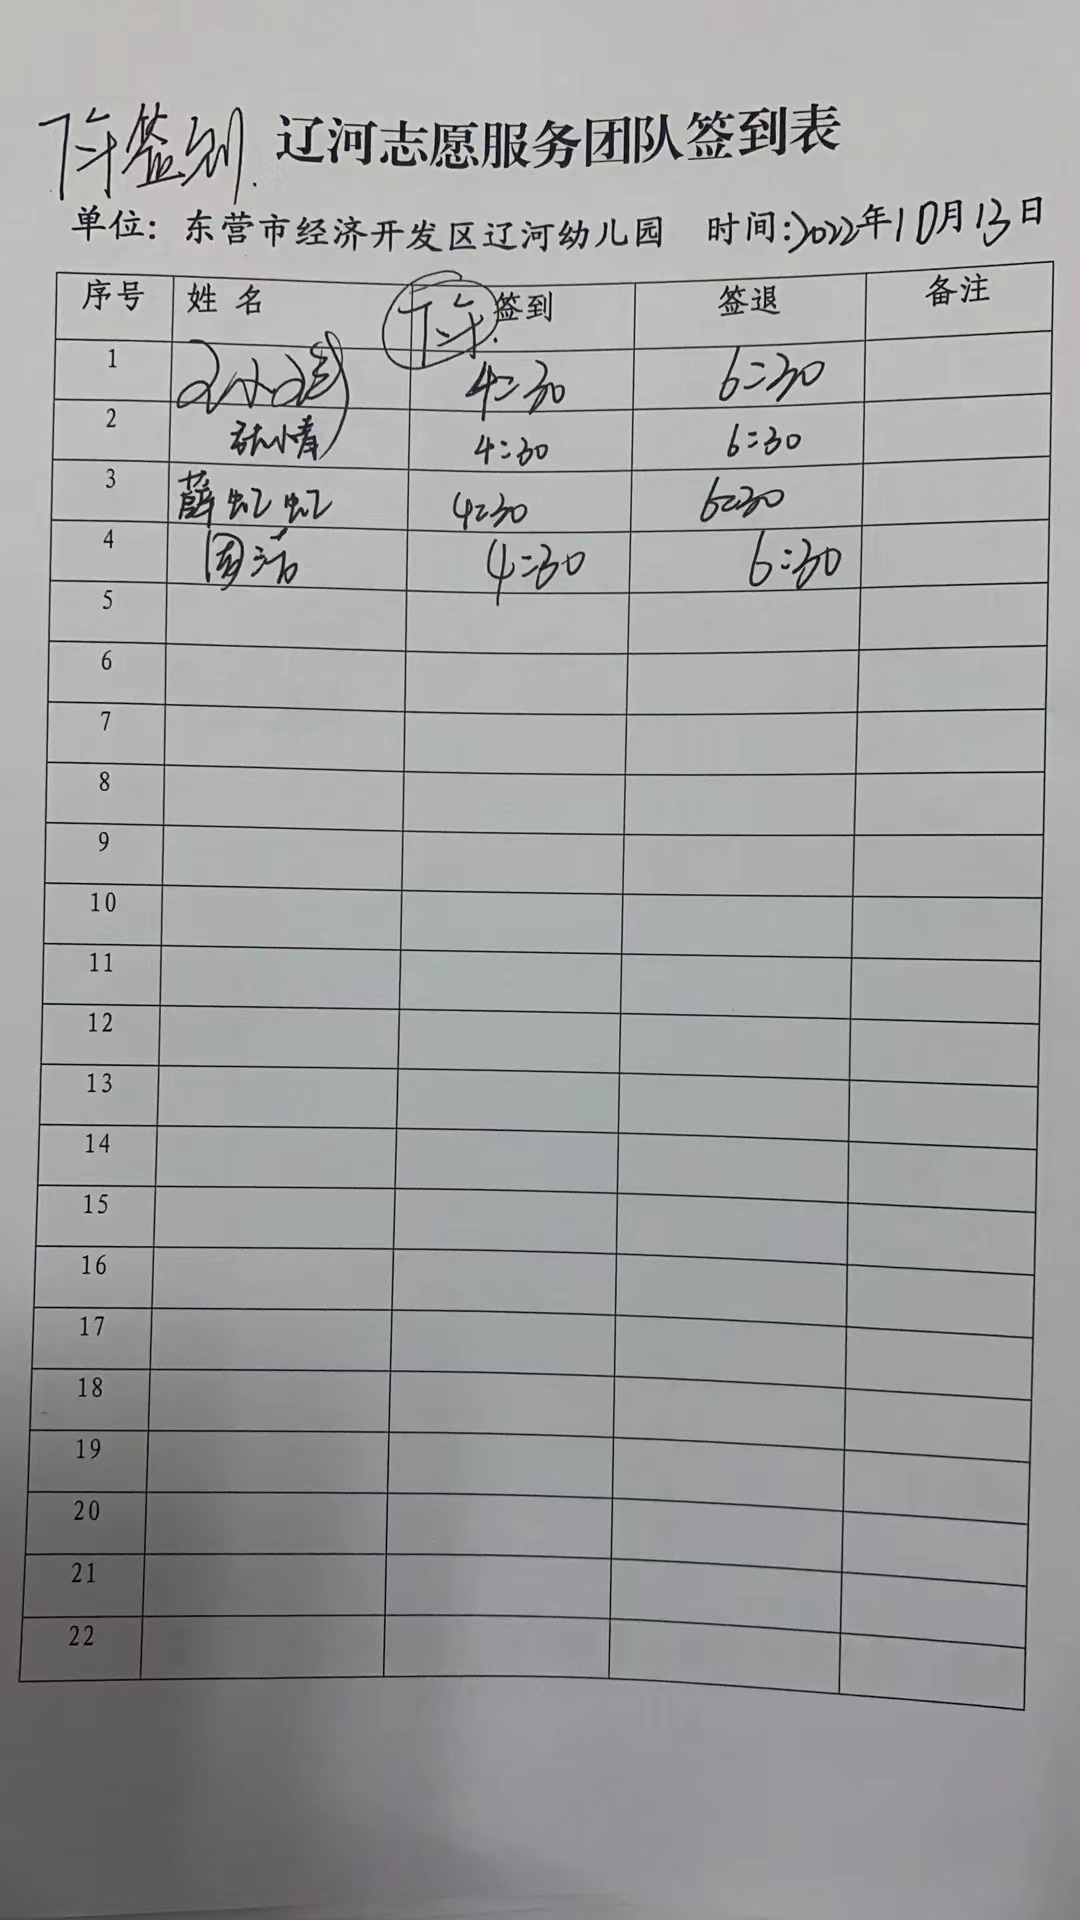 下午签到 辽河志愿服务团队签到表
单位：东营市经济开发区辽河幼儿园 时间:2022年10月13日
序号 姓名 下午签到 签退 备注
1 4:30 6:30
2 张小青 4:30 6:30
3 薛虹虹 4:30 6:30
4 周洁 4:30 6:30
5
6
7
8
9
10
11
12
13
14
15
16
17
18
19
20
21
22